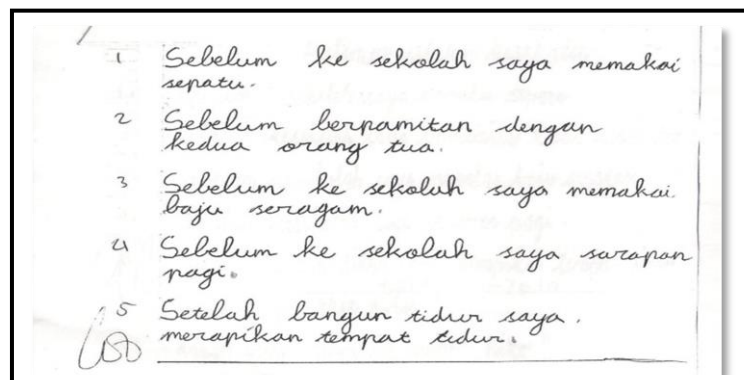 1 Sebelum ke sekolah saya memakai
sepatu.
2 Sebelum berpamitan dengan
kedua orang tua.
3 Sebelum ke sekolah saya memakai.
baju seragam.
4 Sebelum ke sekolah saya sarapan
pagi.
5 Setelah bangun tidur saya.
merapikan tempat tidur.
100